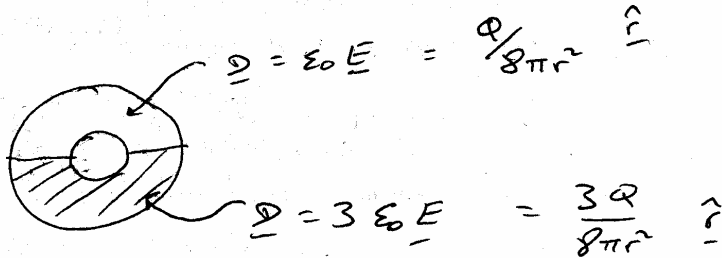 D = ε₀ E = Q/8πr² r̂
D = 3 ε₀ E = 3Q/8πr² r̂